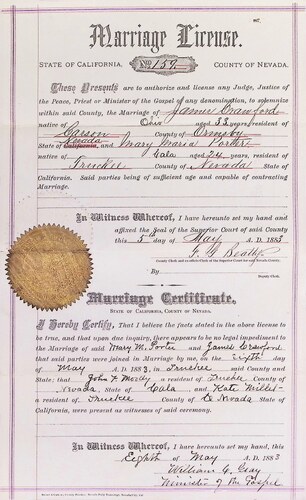 Marriage License.
STATE OF CALIFORNIA. No 159 COUNTY OF NEVADA.
These Presents are to authorize and license any Judge, Justice
of the Peace, Priest or Minister of the Gospel of any denomination, to solemnize
within said County, the Marriage of James Crawford
native of Ohio aged 33 years, resident of
Carson County of Ormsby
State of California, Nevada and Mary Maria Porter
native of Cala aged 24 years, resident of
Truckee County of Nevada State of
California. Said parties being of sufficient age and capable of contracting
Marriage.
In Witness Whereof, I have hereunto set my hand and
affixed the Seal of the Superior Court of said County
this 5th day of May A. D. 1883
County Clerk and ex-officio Clerk of the Superior Court for said Nevada County.
By
Deputy Clerk.
Marriage Certificate.
STATE OF CALIFORNIA, COUNTY OF NEVADA.
I Hereby Certify, That I believe the facts stated in the above license to
be true, and that upon due inquiry, there appears to be no legal impediment to
the Marriage of said Mary M. Porter and James Crawford
that said parties were joined in Marriage by me, on the Sixth day of
May A. D. 1883, in Truckee said County and
State; that John F. Moody a resident of Truckee County of
Nevada, State of Cala and Kate Mills
a resident of Truckee County of Nevada, State of
Cala, were present as witnesses of said ceremony.
In Witness Whereof, I have hereunto set my hand, this
Eighth of May A. D. 1883
William C. Gray
Minister of the Gospel